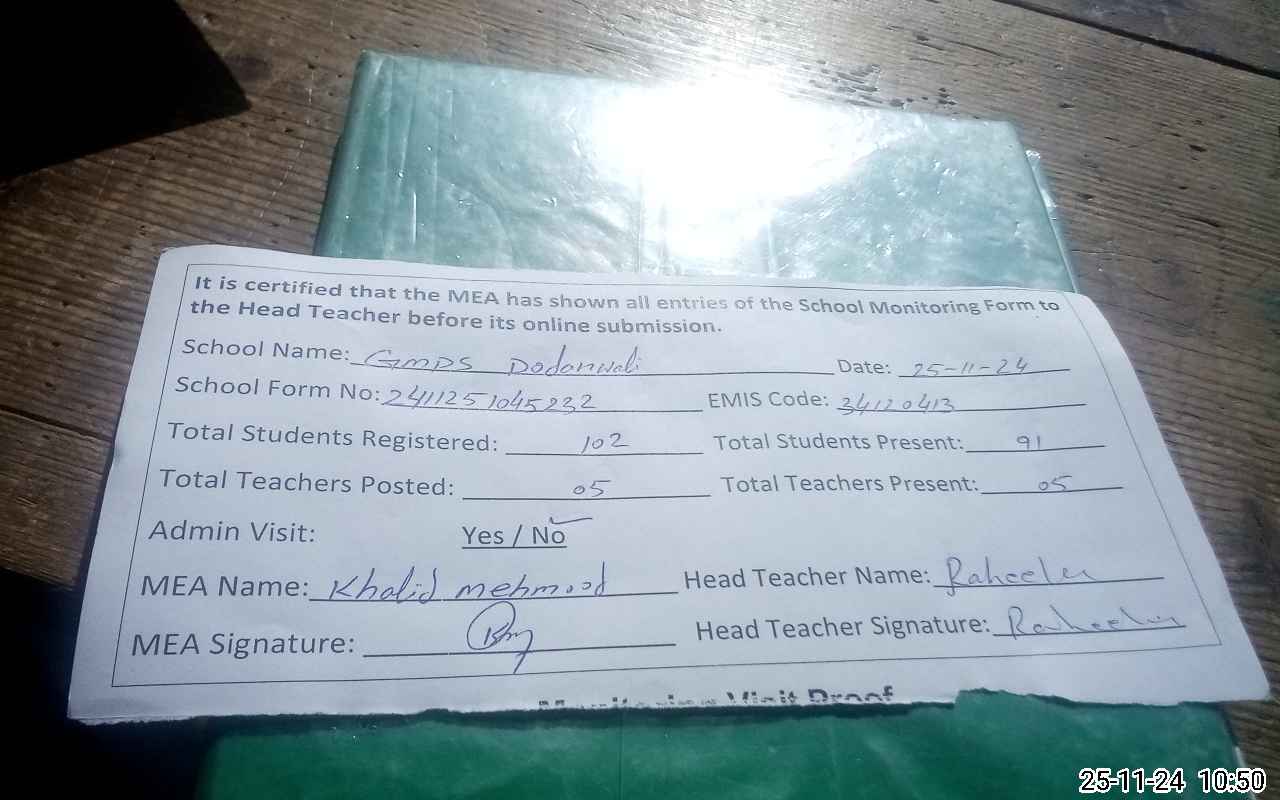 It is certified that the MEA has shown all entries of the School Monitoring Form to
the Head Teacher before its online submission.
School Name: GMPS Dodanwali Date: 25-11-24
School Form No: 2411251045232 EMIS Code: 34120413
Total Students Registered: 102 Total Students Present: 91
Total Teachers Posted: 05 Total Teachers Present: 05
Admin Visit: Yes / No
MEA Name: Khalid mehmood Head Teacher Name: Raheela
MEA Signature: Head Teacher Signature: Raheela
Visit Proof
25-11-24 10:50